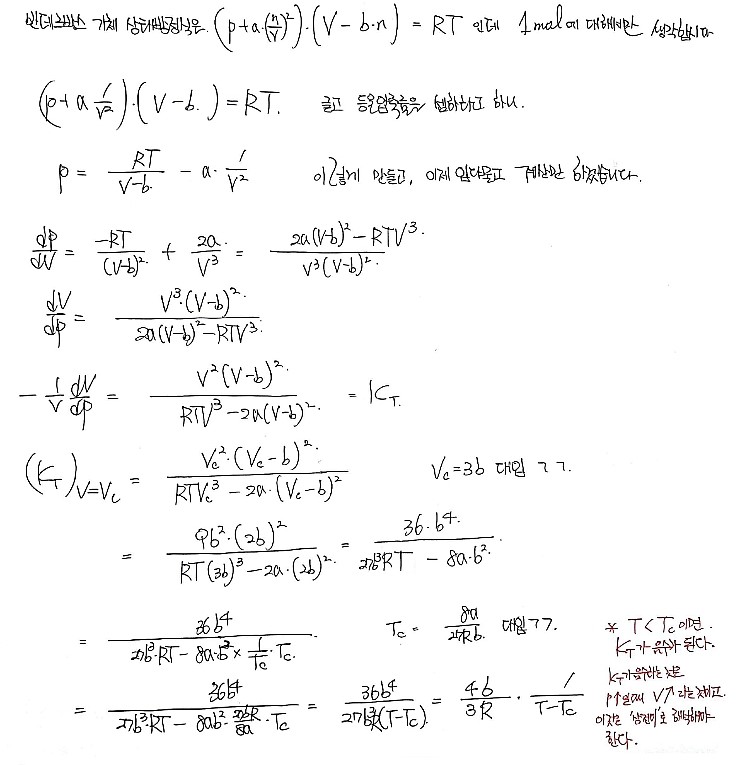 반데르발스 기체 상태방정식은 (p+a·(n/V)²)·(V-b·n) = RT 인데 1mol에 대해서만 생각합시다
(p+a 1/V²)·(V-b.) = RT. 글고 등온압축률을 구하라고 하니.
p = RT/(V-b) - a· 1/V² 이렇게 만들고, 이제 입다물고 계산만 하겠습니다.
dp/dV = -RT/(V-b)² + 2a/V³ = (2a(V-b)² - RTV³)/(V³(V-b)²)
dV/dp = V³·(V-b)²/(2a(V-b)² - RTV³)
- 1/V dV/dp = V²(V-b)²/(RTV³ - 2a(V-b)²) = K_T.
(K_T)_{V=V_c} = V_c²·(V_c-b)²/(RTV_c³ - 2a·(V_c-b)²) V_c=3b 대입 ㄱㄱ.
= 9b²·(2b)²/(RT(3b)³ - 2a·(2b)²) = 36·b⁴/(27b³RT - 8a·b²)
= 36b⁴/(27b³·RT - 8a·b² × 1/T_c · T_c) T_c = 8a/27Rb 대입 ㄱㄱ.
= 36b⁴/(27b³·RT - 8ab²· 27bR/8a · T_c) = 36b⁴/(27b³R(T-T_c)) = 4b/3R · 1/(T-T_c)
* T < T_c 이면.
K_T가 음수가 된다.
K_T가 음수라는 것은
p↑일때 V↗ 라는 것이고.
이것은 '상전이'로 해석해야
한다.